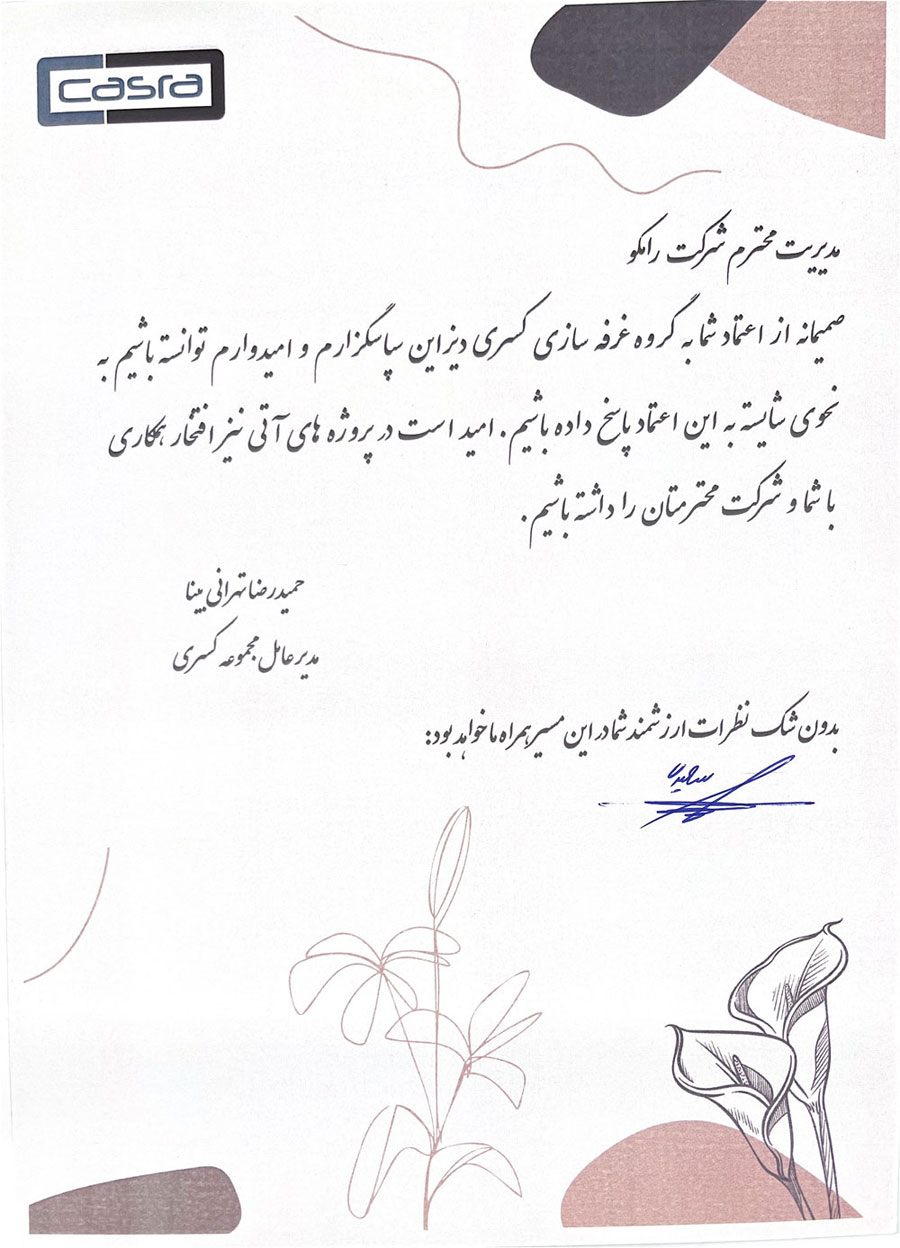 casra
مدیریت محترم شرکت رامکو
صمیمانه از اعتماد شما به گروه غرفه سازی کسری دیزاین سپاسگزارم و امیدوارم توانسته باشیم به
نحوی شایسته به این اعتماد پاسخ داده باشیم . امید است در پروژه های آتی نیز افتخار همکاری
با شما و شرکت محترمتان را داشته باشیم .
حمیدرضا تهرانی بینا
مدیر عامل مجموعه کسری
بدون شک نظرات ارزشمند شما در این مسیر همراه ما خواهد بود: